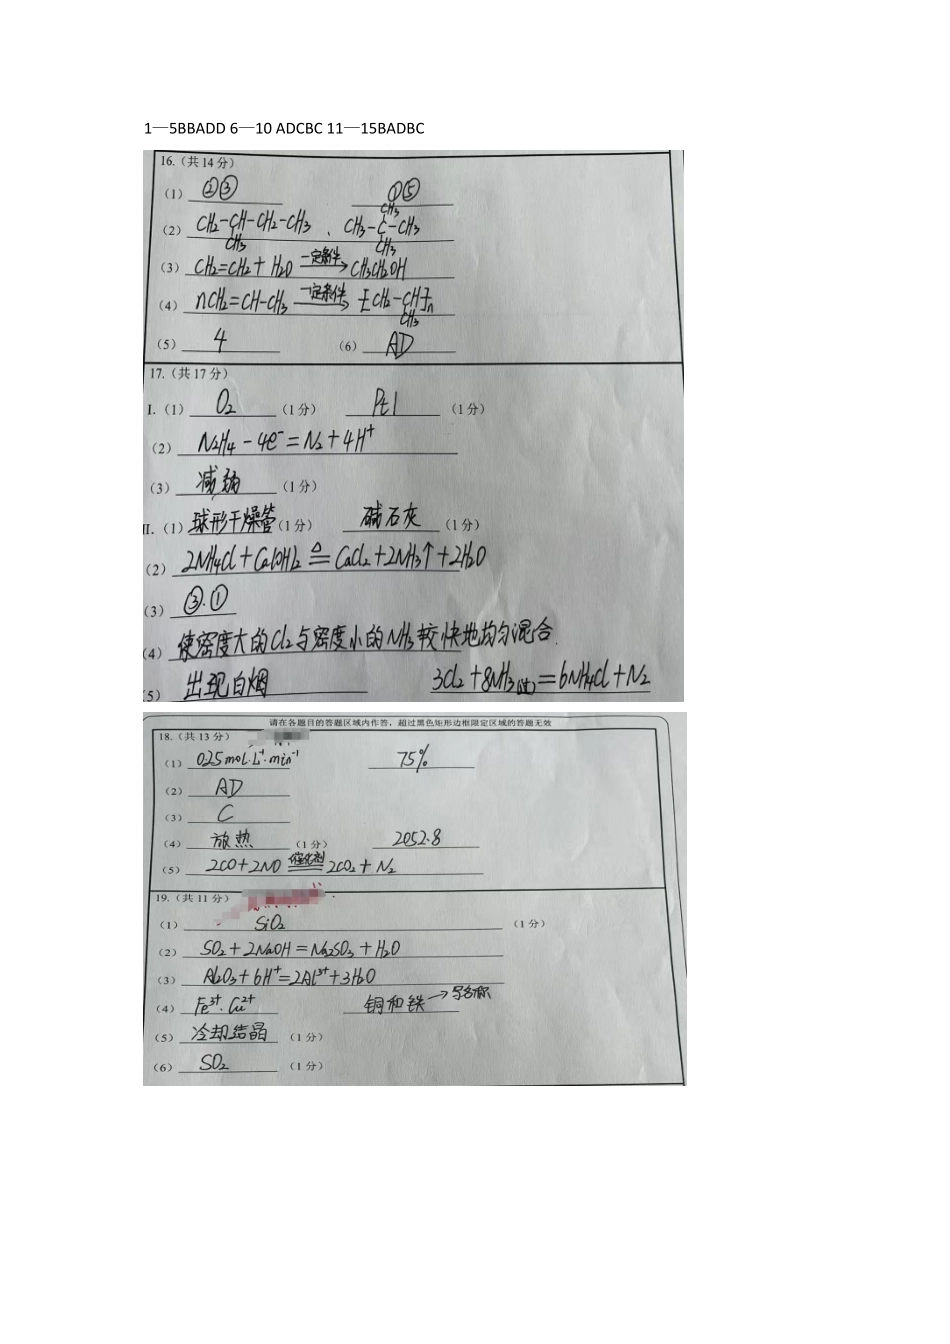 1—5BBADD 6—10 ADCBC 11—15BADBC
16.（共14分）
（1） ②③ ①⑤
CH₃
（2） CH₂-CH-CH₂-CH₃ 、 CH₃-C-CH₃
CH₃ CH₃
（3） CH₂=CH₂+H₂O 一定条件→ CH₃CH₂OH
（4） nCH₂=CH-CH₃ 一定条件→ [CH₂-CH]n
CH₃
（5） 4 （6） AD
17.（共17分）
I.（1） O₂ （1分） Pt1 （1分）
（2） N₂H₄-4e⁻=N₂+4H⁺
（3） 减弱 （1分）
II.（1） 球形干燥管（1分） 碱石灰 （1分）
（2） 2NH₄Cl+Ca(OH)₂ ≜ CaCl₂+2NH₃↑+2H₂O
（3） ③.①
（4） 使密度大的Cl₂与密度小的NH₃较快地均匀混合.
（5） 出现白烟 3Cl₂+8NH₃(过)=6NH₄Cl+N₂
请在各题目的答题区域内作答，超过黑色矩形边框限定区域的答题无效
18.（共13分）
（1） 0.25mol·L⁻¹·min⁻¹ 75%
（2） AD
（3） C
（4） 放热 （1分） 2052.8
催化剂
（5） 2CO+2NO=2CO₂+N₂
19.（共11分）
（1） SiO₂ （1分）
（2） SO₂+2NaOH=Na₂SO₃+H₂O
（3） Al₂O₃+6H⁺=2Al³⁺+3H₂O
（4） Fe³⁺.Cu²⁺ 铜和铁→写名称
（5） 冷却结晶 （1分）
（6） SO₂ （1分）